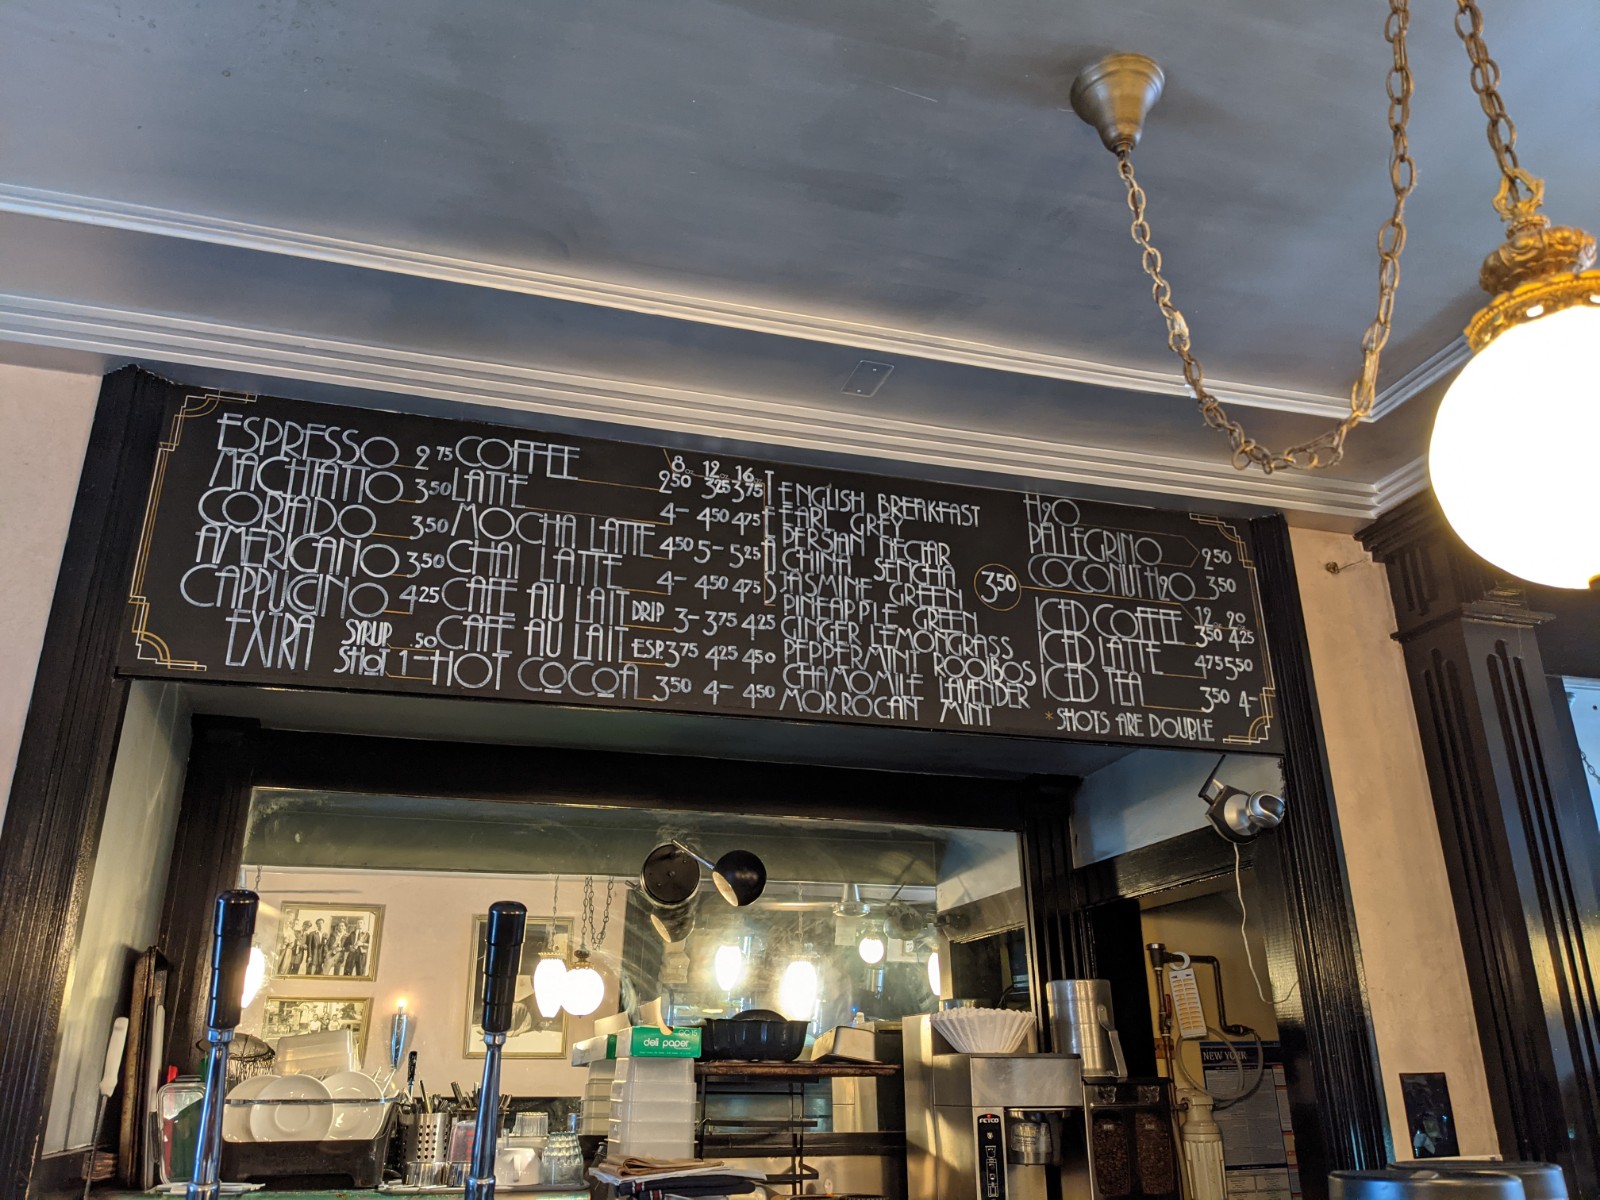 ESPRESSO 2 75
MACHIATTO 3 50
CORTADO 3 50
AMERICANO 3 50
CAPPUCINO 4 25
EXTRA SYRUP .50
SHOT 1-
8oz 12oz 16oz
COFFEE 2 50 3 25 3 75
LATTE 4- 4 50 4 75
MOCHA LATTE 4 50 5- 5 25
CHAI LATTE 4- 4 50 4 75
CAFE AU LAIT DRIP 3- 3 75 4 25
CAFE AU LAIT ESP. 3 75 4 25 4 50
HOT COCOA 3 50 4- 4 50
TEAS
ENGLISH BREAKFAST
EARL GREY
PERSIAN NECTAR
CHINA SENCHA
JASMINE GREEN
PINEAPPLE GREEN
GINGER LEMONGRASS
PEPPERMINT ROOIBOS
CHAMOMILE LAVENDER
MORROCAN MINT
3 50
H2O
PELLEGRINO 2 50
COCONUT H2O 3 50
12 20
ICED COFFEE 3 50 4 25
ICED LATTE 4 75 5 50
ICED TEA 3 50 4-
*SHOTS ARE DOUBLE
GC-15
deli paper
FETCO
NEW YORK